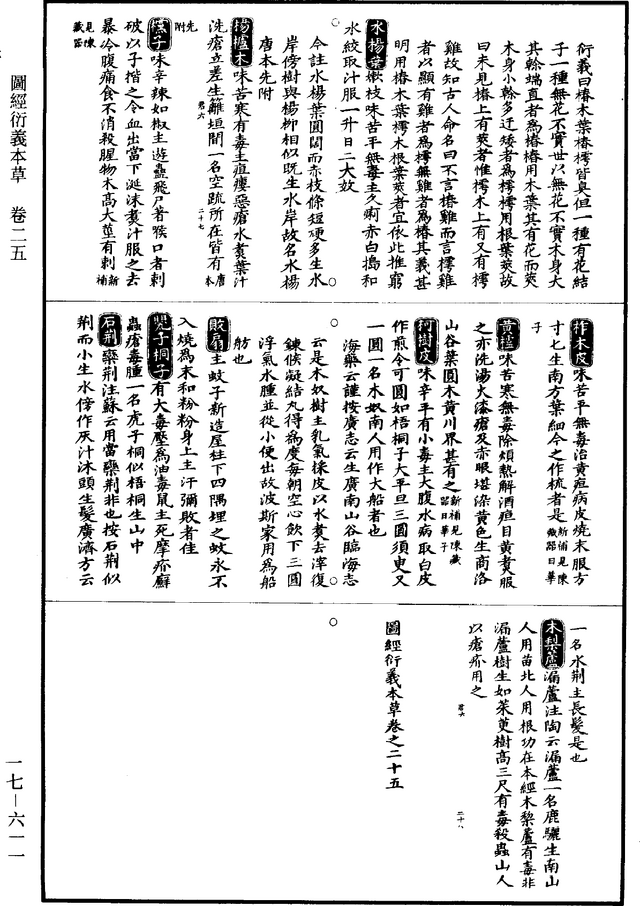 圖經衍義本草　卷二五
衍義曰椿木葉椿樗皆臭但一種有花結
子一種無花不實世以無花不實木身大
其幹端直者為椿椿用木葉其有花而莢
木身小幹多迂矮者為樗樗用根葉莢故
曰未見椿上有莢者惟樗木上有又有樗
雞故知古人命名曰不言椿雞而言樗雞
者以顯有雞者為樗無雞者為椿其義甚
明用椿木葉樗木根葉莢者宜依此推窮
水楊葉嫩枝味苦平無毒主久痢赤白搗和
水絞取汁服一升日二大效
今註水楊葉圓闊而赤枝條短硬多生水
岸傍樹與楊柳相似既生水岸故名水楊
唐本先附
楊櫨木味苦寒有毒主疽瘻惡瘡水煑葉汁
洗瘡立差生籬垣間一名空疏所在皆有唐本
先附
第六
二十七
㰇子味辛辣如椒主遊蠱飛尸著喉口者刺
破以子揩之令血出當下涎沫煑汁服之去
暴冷腹痛食不消殺腥物木高大莖有刺新補
見陳藏器
柞木皮味苦平無毒治黃疸病皮燒末服方
寸七生南方葉細今之作梳者是新補見陳藏器日華
子
黃櫨味苦寒無毒除煩熱解酒疸目黃煑服
之亦洗湯火漆瘡及赤眼堪染黃色生商洛
山谷葉圓木黃川界甚有之新補見陳藏器日華子
柯樹皮味辛平有小毒主大腹水病取白皮
作煎令可圓如梧桐子大平旦三圓須臾又
一圓一名木奴南人用作大船者也
海藥云謹按廣志云生廣南山谷臨海志
云是木奴樹主乳氣採皮以水煑去滓復
鍊候凝結丸得為度每朝空心飲下三圓
浮氣水腫並從小便出故波斯家用為船
舫也
敗扇主蚊子新造屋柱下四隅埋之蚊永不
入燒為末和粉粉身上主汗彌敗者佳
甖子桐子有大毒壓為油毒鼠主死摩疥癬
蟲瘡毒腫一名虎子桐似梧桐生山中
石荊欒荊注蘇云用當欒荊非也按石荊似
荊而小生水傍作灰汁沐頭生髮廣濟方云
一名水荊主長髮是也
木藜蘆漏蘆注陶云漏蘆一名鹿驪生南山
人用苗北人用根功在本經木藜蘆有毒非
漏蘆樹生如茱萸樹高三尺有毒殺蟲山人
以瘡疥用之
第六
二十八
圖經衍義本草卷之二十五
一七－六一一